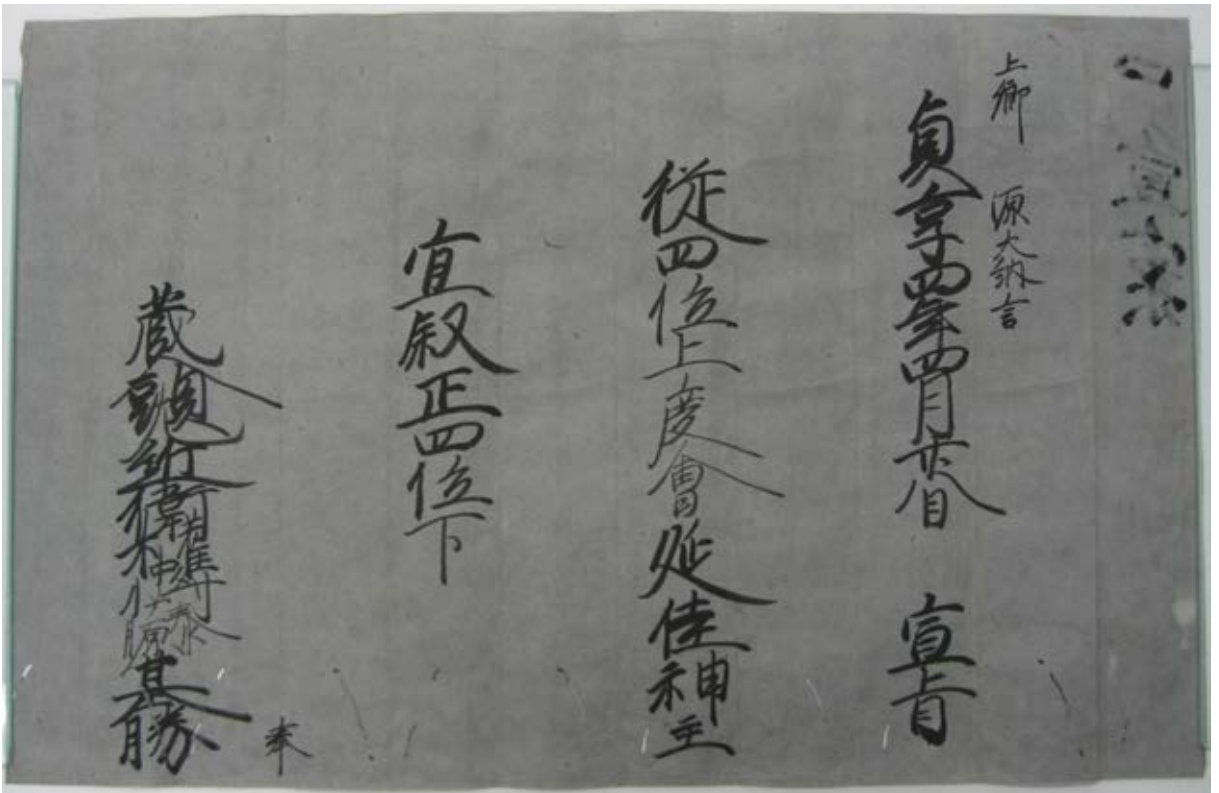 口宣案
上卿 源大納言
貞享四年四月廿八日 宣旨
従四位上度會延佳神主
宜叙正四位下
蔵人頭左近衛権中将藤原基勝 奉